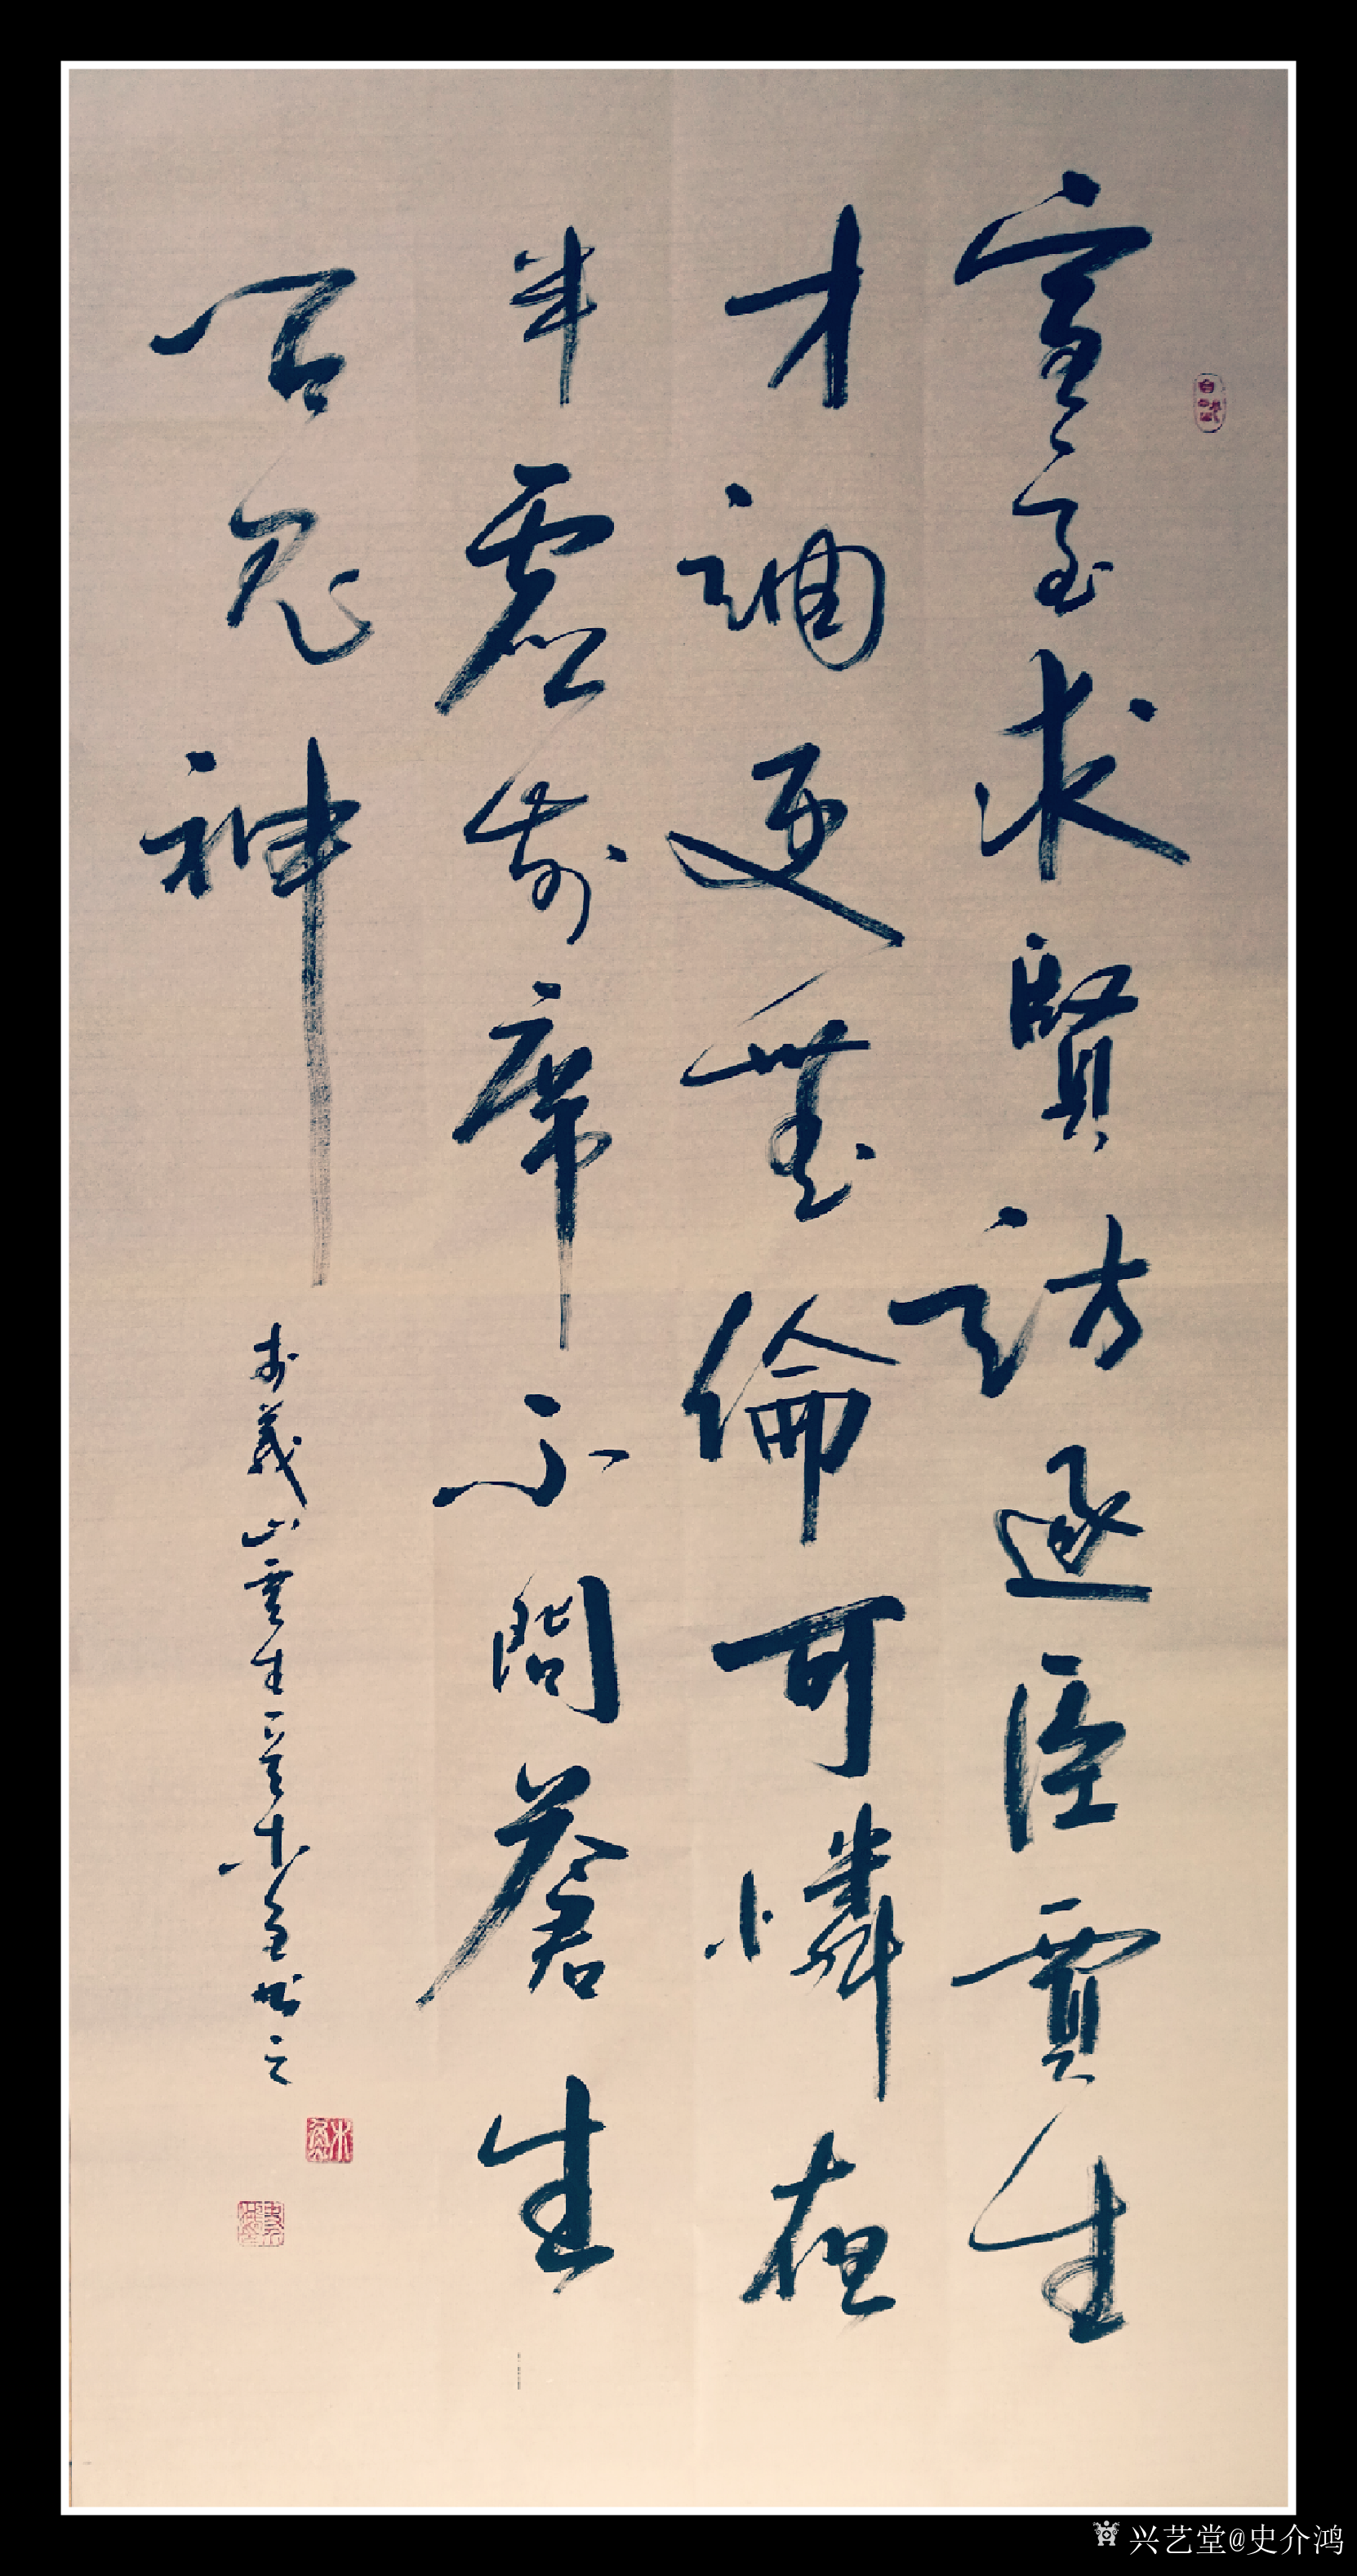 宣室求賢訪逐臣賈生
才調更無倫可憐夜
半虛前席不問蒼生
問鬼神
李義山賈生一首 書之
兴艺堂@史介鸿